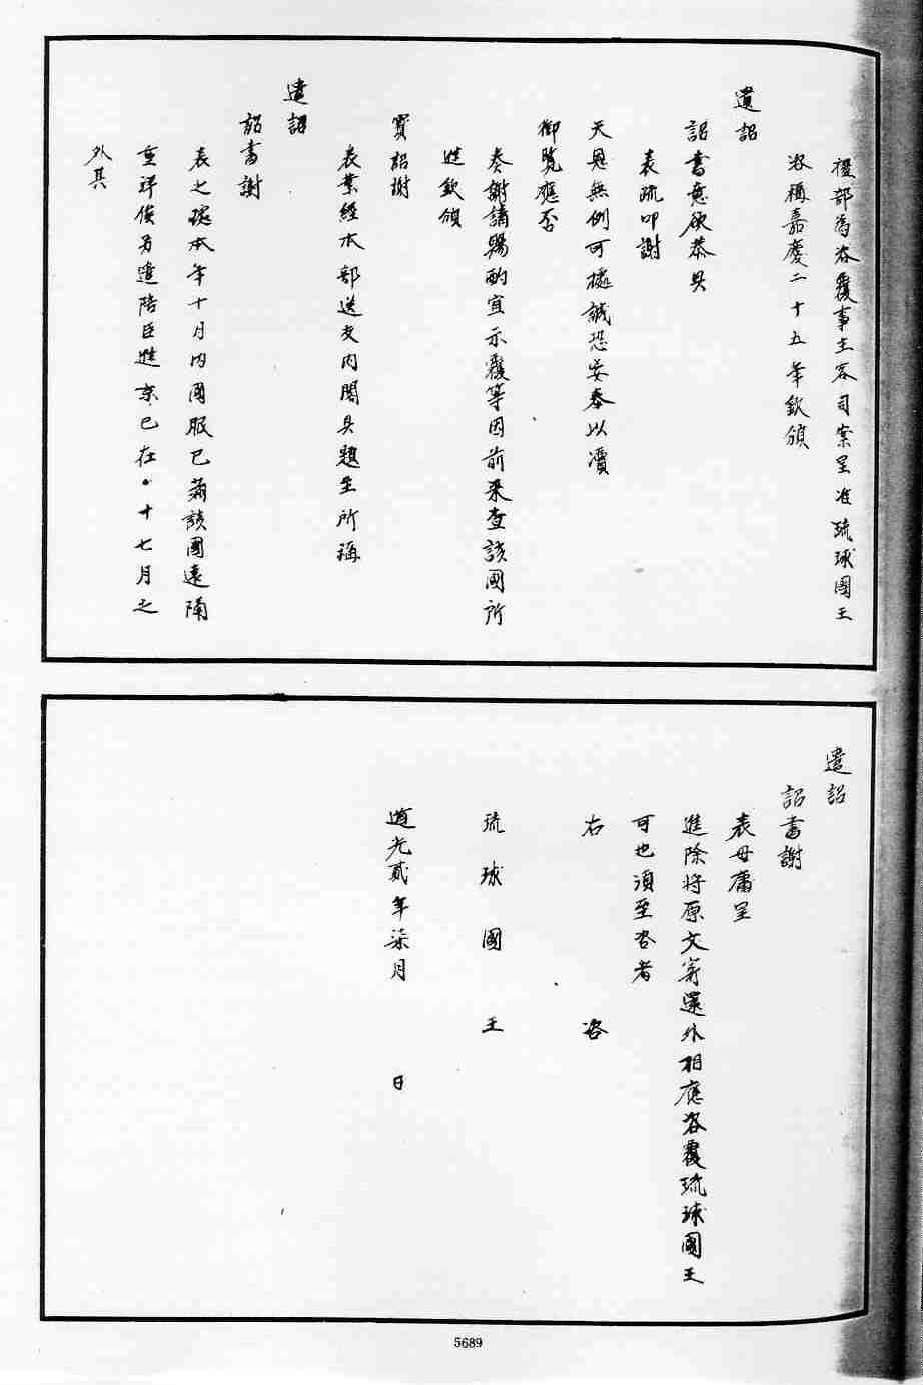 禮部爲咨覆事主客司案呈准琉球國王
咨稱嘉慶二十五年欽頒
遺詔
詔書意欲恭具
表疏叩謝
天恩無例可據誠恐妄奏以瀆
御覽應否
奏謝請賜酌宜示覆等因前來查該國所
進欽頒
寶詔謝
表業經本部送交内閣具題至所稱
遺詔
詔書謝
表之處本年十月内國服已滿該國遠隔
重洋俟另遣陪臣進京已在十七月之
外其
遺詔
詔書謝
表毋庸呈
進除將原文寄還外相應咨覆琉球國王
可也須至咨者
右咨
琉球國王
道光貳年柒月 日
5689